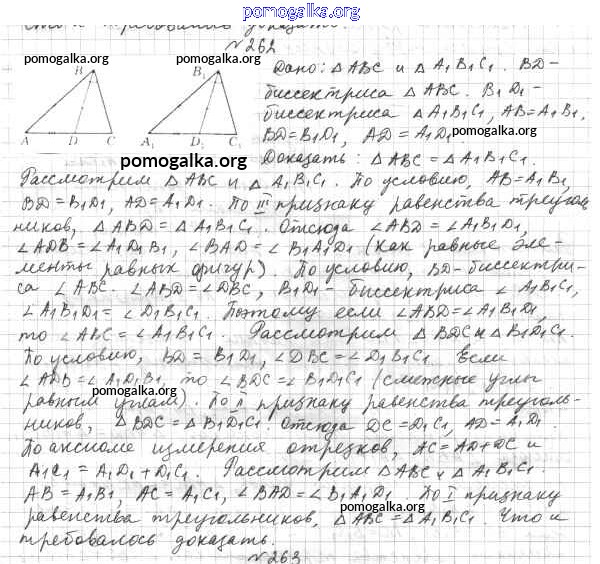 pomogalka.org
что и требовалось доказать.
№262
pomogalka.org pomogalka.org
B B₁
A D C A₁ D₁ C₁
pomogalka.org
Дано: △ABC и △A₁B₁C₁. BD-
биссектриса △ABC. B₁D₁-
биссектриса △A₁B₁C₁, AB=A₁B₁,
BD=B₁D₁, AD=A₁D₁.
pomogalka.org
Доказать: △ABC=△A₁B₁C₁.
Рассмотрим △ABC и △A₁B₁C₁. По условию, AB=A₁B₁,
BD=B₁D₁, AD=A₁D₁. По III признаку равенства треуголь
ников, △ABD=△A₁B₁C₁. Отсюда ∠ABD=∠A₁B₁D₁,
∠ADB=∠A₁D₁B₁, ∠BAD=∠B₁A₁D₁ (как равные эле-
менты равных фигур). По условию, BD-биссектри-
са ∠ABC. ∠ABD=∠DBC, B₁D₁- биссектриса ∠A₁B₁C₁,
∠A₁B₁D₁=∠D₁B₁C₁. Поэтому если ∠ABD=∠A₁B₁D₁,
то ∠ABC=∠A₁B₁C₁. Рассмотрим △BDC и △B₁D₁C₁.
По условию, BD=B₁D₁, ∠DBC=∠D₁B₁C₁. Если
∠ADB=∠A₁D₁B₁, то ∠BDC=∠B₁D₁C₁ (смежные углы
pomogalka.org
равным углам). По II признаку равенства треуголь-
ников, △BDC=△B₁D₁C₁. Отсюда DC=D₁C₁, AD=A₁D₁.
pomogalka.org
По аксиоме измерения отрезков, AC=AD+DC и
A₁C₁=A₁D₁+D₁C₁. Рассмотрим △ABC и △A₁B₁C₁.
AB=A₁B₁, AC=A₁C₁, ∠BAD=∠B₁A₁D₁. По I признаку
pomogalka.org
равенства треугольников, △ABC=△A₁B₁C₁. Что и
требовалось доказать.
№263